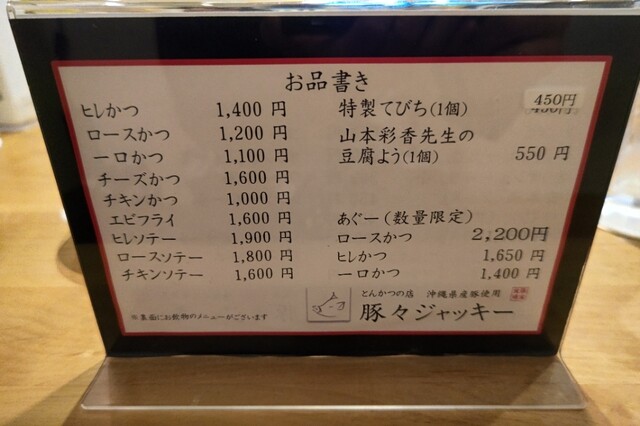 お品書き
ヒレかつ 1,400 円
ロースかつ 1,200 円
一口かつ 1,100 円
チーズかつ 1,600 円
チキンかつ 1,000 円
エビフライ 1,600 円
ヒレソテー 1,900 円
ロースソテー 1,800 円
チキンソテー 1,600 円
特製てびち(1個) 450円
山本彩香先生の
豆腐よう(1個) 550 円
あぐー(数量限定)
ロースかつ 2,200円
ヒレかつ 1,650 円
一口かつ 1,400 円
とんかつの店 沖縄県産豚使用
豚々ジャッキー
※裏面にお飲物のメニューがございます